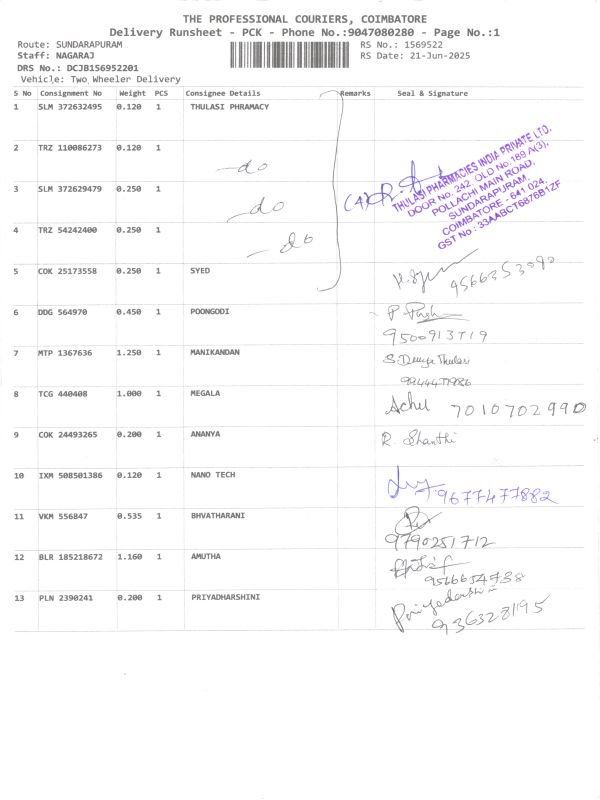 THE PROFESSIONAL COURIERS, COIMBATORE
Delivery Runsheet - PCK - Phone No.:9047080280 - Page No.:1
Route: SUNDARAPURAM RS No.: 1569522
Staff: NAGARAJ RS Date: 21-Jun-2025
DRS No.: DCJB156952201
Vehicle: Two Wheeler Delivery
S No Consignment No Weight PCS Consignee Details Remarks Seal & Signature
1 SLM 372632495 0.120 1 THULASI PHRAMACY
2 TRZ 110086273 0.120 1 -do
3 SLM 372629479 0.250 1 -do
4 TRZ 54242400 0.250 1 -do
(4)
THULASI PHARMACIES INDIA PRIVATE LTD.
DOOR No. 242, OLD No. 189 A(3),
POLLACHI MAIN ROAD,
SUNDARAPURAM,
COIMBATORE - 641 024.
GST No : 33AABCT6876B1ZF
5 COK 25173558 0.250 1 SYED
9566353090
6 DDG 564970 0.450 1 POONGODI
9500913719
7 MTP 1367636 1.250 1 MANIKANDAN S. Thulasi
8 TCG 440408 1.000 1 MEGALA
7010702990
9 COK 24493265 0.200 1 ANANYA R. Shanthi
10 IXM 508501386 0.120 1 NANO TECH
9677477882
11 VKM 556847 0.535 1 BHVATHARANI
9790251712
12 BLR 185218672 1.160 1 AMUTHA
9566654738
13 PLN 2390241 0.200 1 PRIYADHARSHINI
9363281195